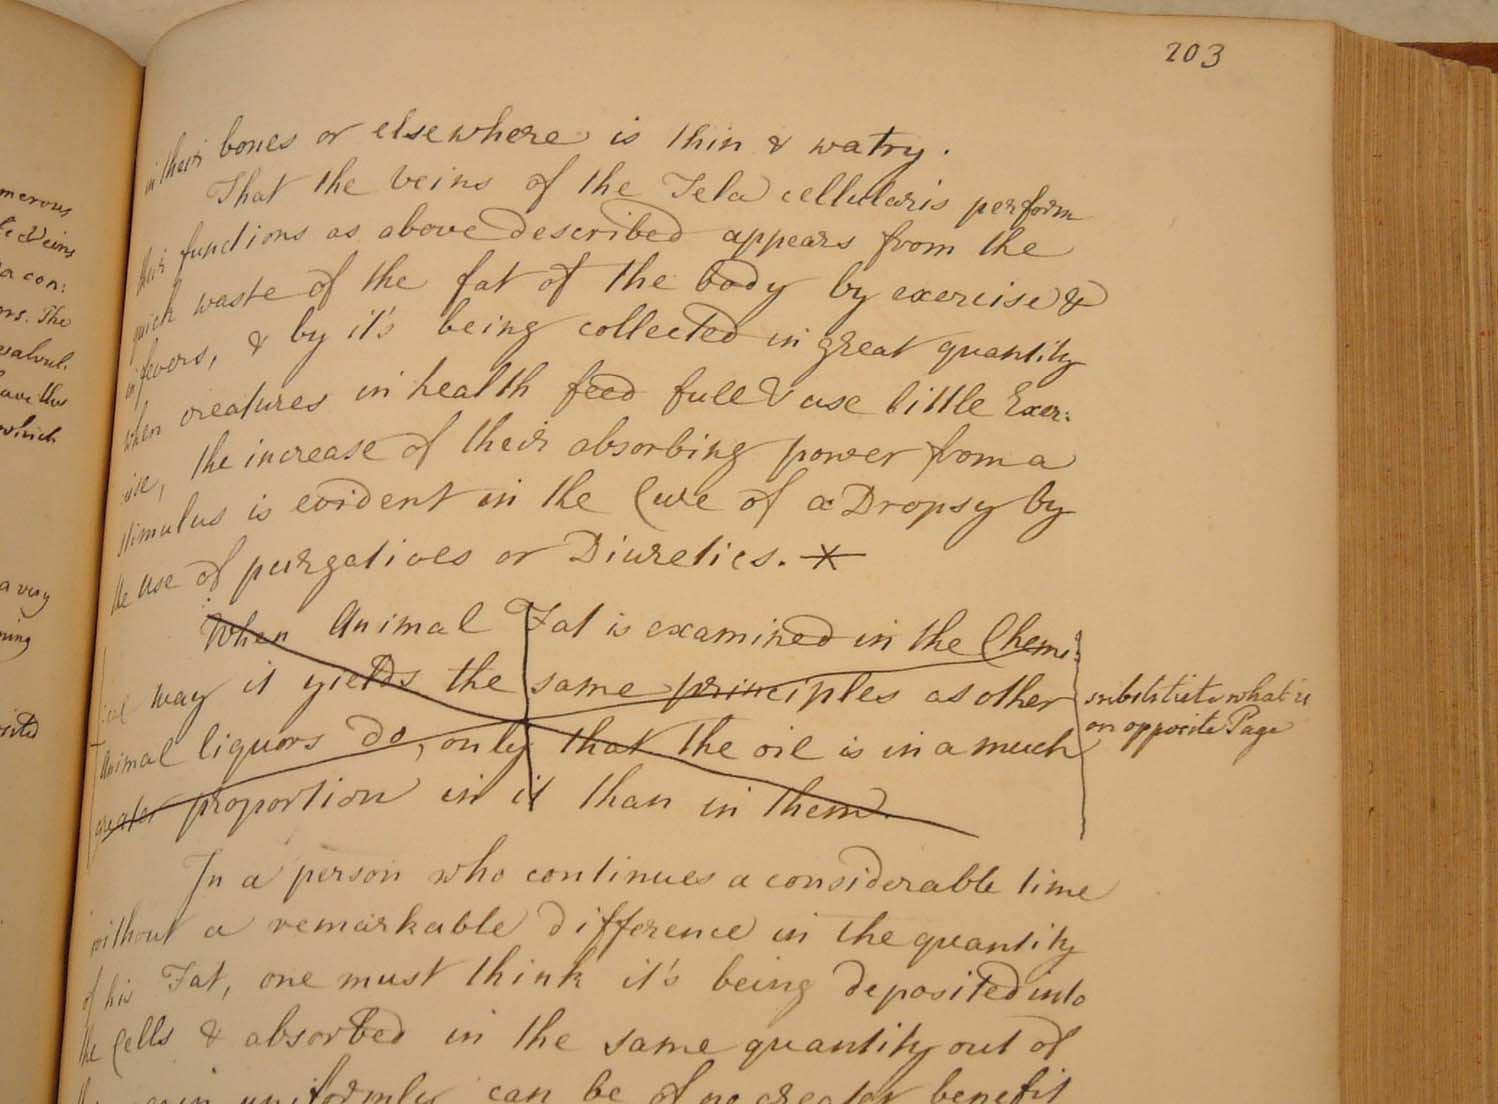 merous
Veins
a con:
rs. The
have thus
which
a very
ning
203
in their bones or elsewhere is thin & watry.
That the veins of the Tela cellularis perform
their functions as above described appears from the
quick waste of the fat of the body by exercise &
in fevers, & by it's being collected in great quantity
when creatures in health feed full & use little Exer:
cise, the increase of their absorbing power from a
stimulus is evident in the Cure of a Dropsy by
the use of purgatives or Diuretics. *
When Animal Fat is examined in the Chemi:
cal way it yields the same principles as other
Animal liquors do, only that the oil is in a much
greater proportion in it than in them.
substitute what is
on opposite Page
In a person who continues a considerable time
without a remarkable difference in the quantity
of his Fat, one must think it's being deposited into
the Cells & absorbed in the same quantity out of
uniformly can be of no greater benefit